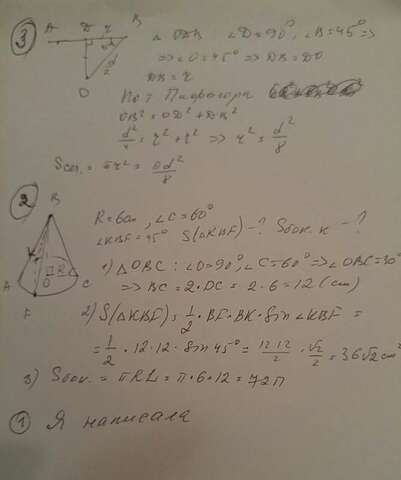 ③ A D r B
45°
d/2
O
△ ODB : ∠D = 90°, ∠B = 45° ⇒
⇒ ∠O = 45° ⇒ DB = DO
DB = r
По т Пифагора
OB² = OD² + DB²
d²/4 = r² + r² ⇒ r² = d²/8
Sсеч. = πr² = πd²/8
②
B
K
R
A O C
F
R = 6см, ∠C = 60°
∠KBF = 45° S(△KBF) - ? Sбок. к - ?
1) △OBC : ∠O = 90°, ∠C = 60° ⇒ ∠OBC = 30°
⇒ BC = 2·OC = 2·6 = 12 (см)
2) S(△KBF) = 1/2 · BF · BK · Sin∠KBF =
= 1/2 · 12 · 12 · Sin 45° = 12·12/2 · √2/2 = 36√2 см²
3) Sбок. = πRL = π·6·12 = 72π
① Я написала